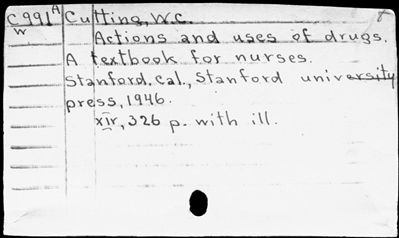 C991A Cutting, W.C.
W Actions and uses of drugs.
A textbook for nurses.
Stanford, Cal., Stanford university
press, 1946.
xiv, 326 p. with ill.